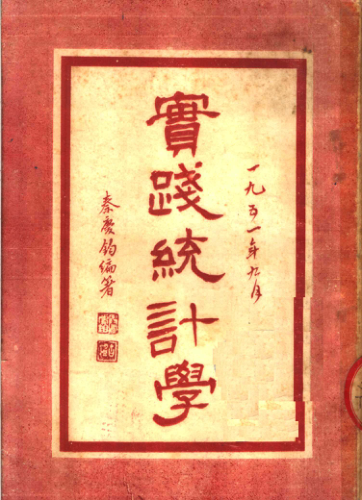 一九五一年九月
實踐統計學
秦慶鈞編著